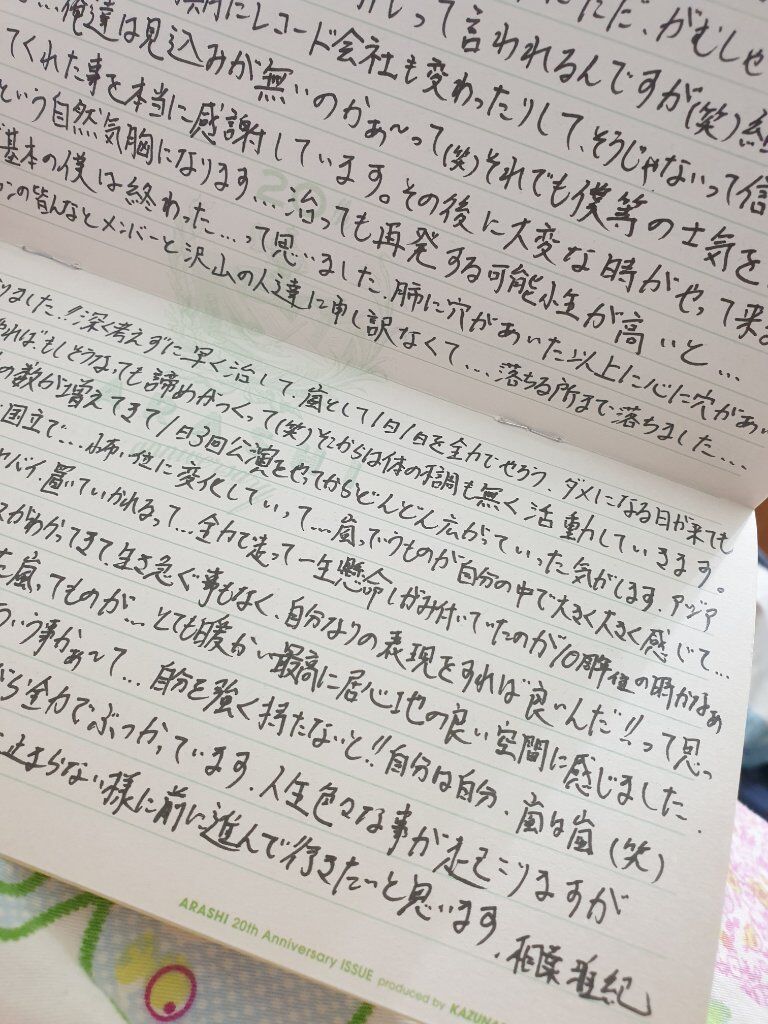 って言われるんですが(笑)
レコード会社も変わったりして、そうじゃないって信
…俺達は見込みが無いのかぁ〜って(笑)それでも僕等の士気を
てくれた事を本当に感謝しています。その後に大変な時がやって来
という自然気胸になります…治っても再発する可能性が高いと…
基本の僕は終わった…って思いました、肺に穴があいた以上に心に穴があい
の皆んなとメンバーと沢山の人達に申し訳なくて…落ちる所まで落ちました…
りました!!深く考えずに早く治して、嵐として1日1日を全力でやろう、ダメになる日が来ても
もしそうなっても諦めがつくって(笑)そこからは体の不調も無く活動していきます。
の数が増えてきて1日3回公演をやってからどんどん広がっていった気がします、アジア
国立で…位に変化していって…嵐ってうものが自分の中で大きく大きく感じて…
バイ、置いていかれるって…全力で走って一生懸命しがみ付いてたのが10周年位の時かなぁ
がわかってきて、生き急ぐ事もなく、自分なりの表現をすれば良いんだ!!って思っ
嵐ってものが…とても暖かい最高に居心地の良い空間に感じました、
ういう事かぁ〜て…自分を強く持たないと!!自分は自分、嵐は嵐(笑)
全力でぶつかっています、人生色々な事が起こりますが
止まらない様に前に進んで行きたいと思います、相葉雅紀
ARASHI 20th Anniversary ISSUE produced by KAZUNA